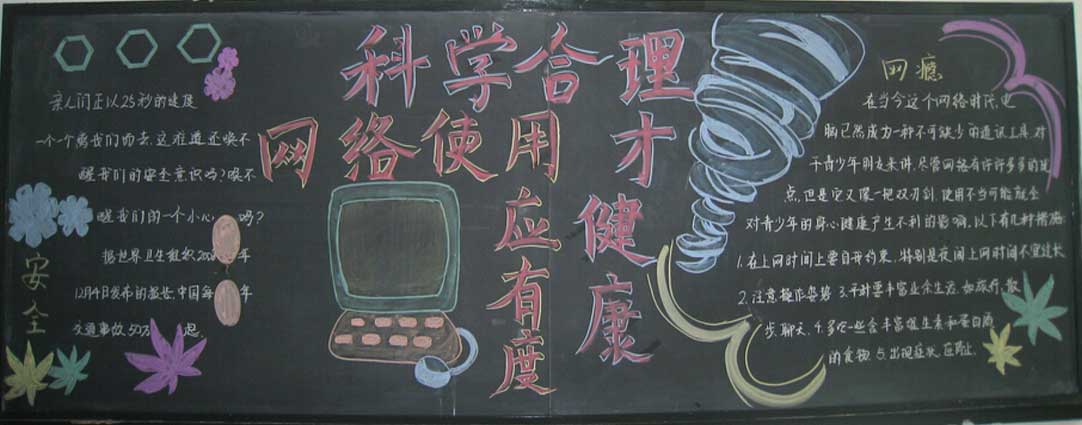 科学合理
网络使用才健康
应有度
安全
亲人们正以25秒的速度
一个个离我们而去,这难道还唤不
醒我们的安全意识吗?唤不
醒我们的一个小心 吗?
据世界卫生组织200 年
12月4日发布的报告,中国每 年
交通事故50万 起
网瘾
在当今这个网络时代,电
脑已然成为一种不可缺少的通讯工具,对
于青少年朋友来讲,尽管网络有许许多多的优
点,但是它又像一把双刃剑,使用不当可能就会
对青少年的身心健康产生不利的影响,以下有几种措施
1.在上网时间上要自我约束,特别是夜间上网时间不宜过长
2.注意操作姿势 3.平时要丰富业余生活,如旅行、散
步、聊天、4.多吃一些含丰富维生素和蛋白质
的食物 5.出现症状,应停止.